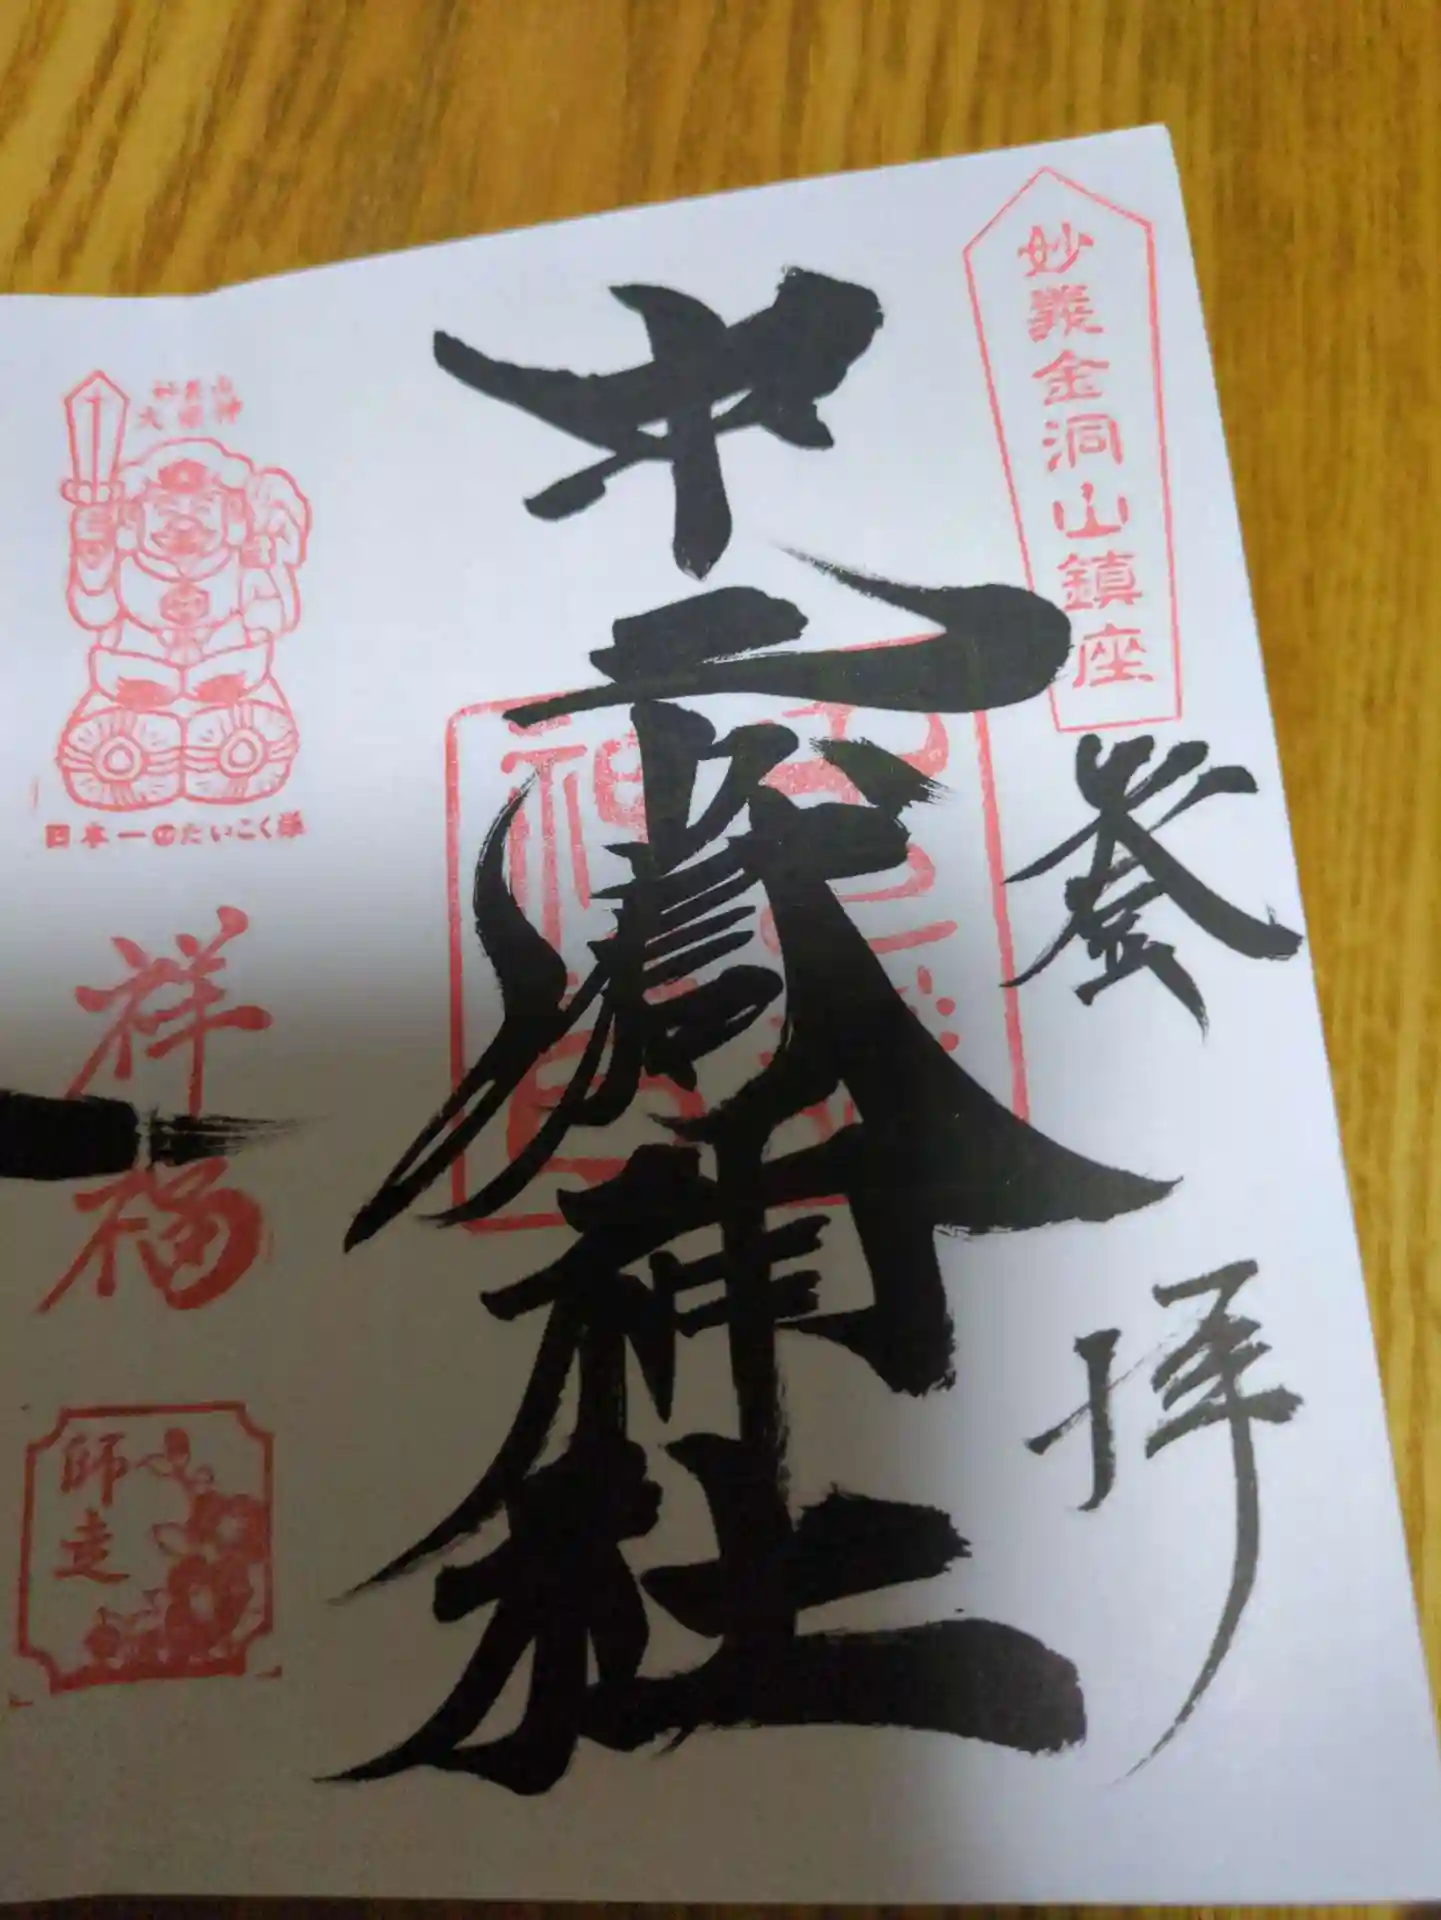 妙義金洞山鎮座
登拝
中之嶽神社
日本一のだいこく様
祥福
師走